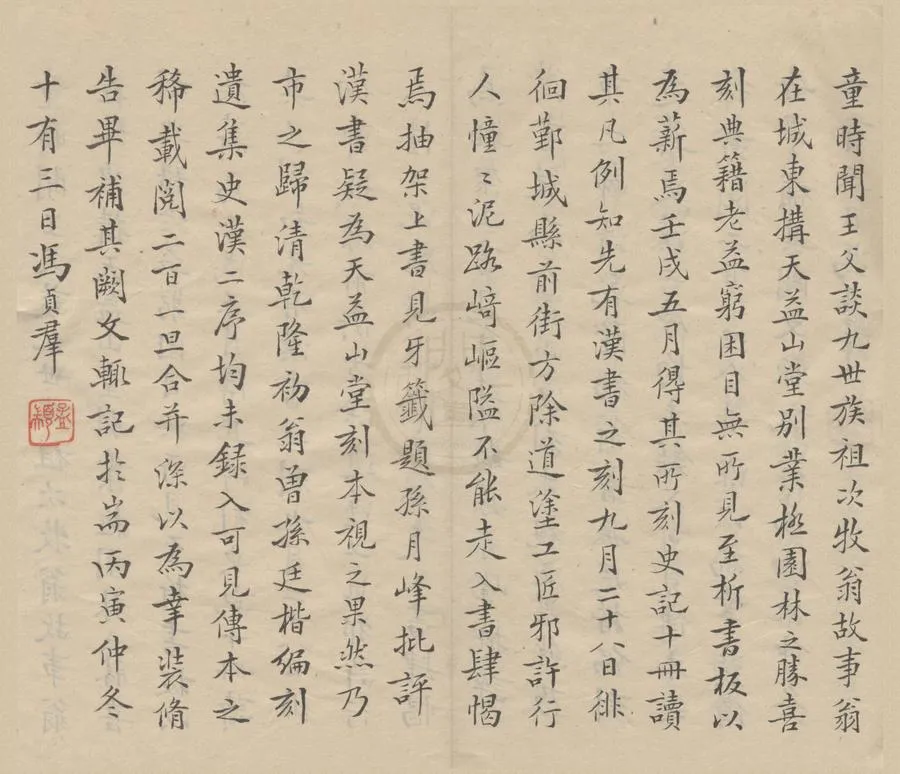 童時聞王父談九世族祖次牧翁故事翁
在城東搆天益山堂別業極園林之勝喜
刻典籍老益窮困目無所見至析書板以
為薪焉壬戌五月得其所刻史記十冊讀
其凡例知先有漢書之刻九月二十八日徘
徊鄞城縣前街方除道塗工匠邪許行
人憧〻泥路﨑嶇隘不能走入書肆愒
焉抽架上書見牙籤題孫月峰批評
漢書疑為天益山堂刻本視之果然乃
市之歸清乾隆初翁曾孫廷楷編刻
遺集史漢二序均未録入可見傳本之
稀載閲二百一旦合并深以為幸裝脩
告畢補其闕文輒記於耑丙寅仲冬
十有三日馮貞羣